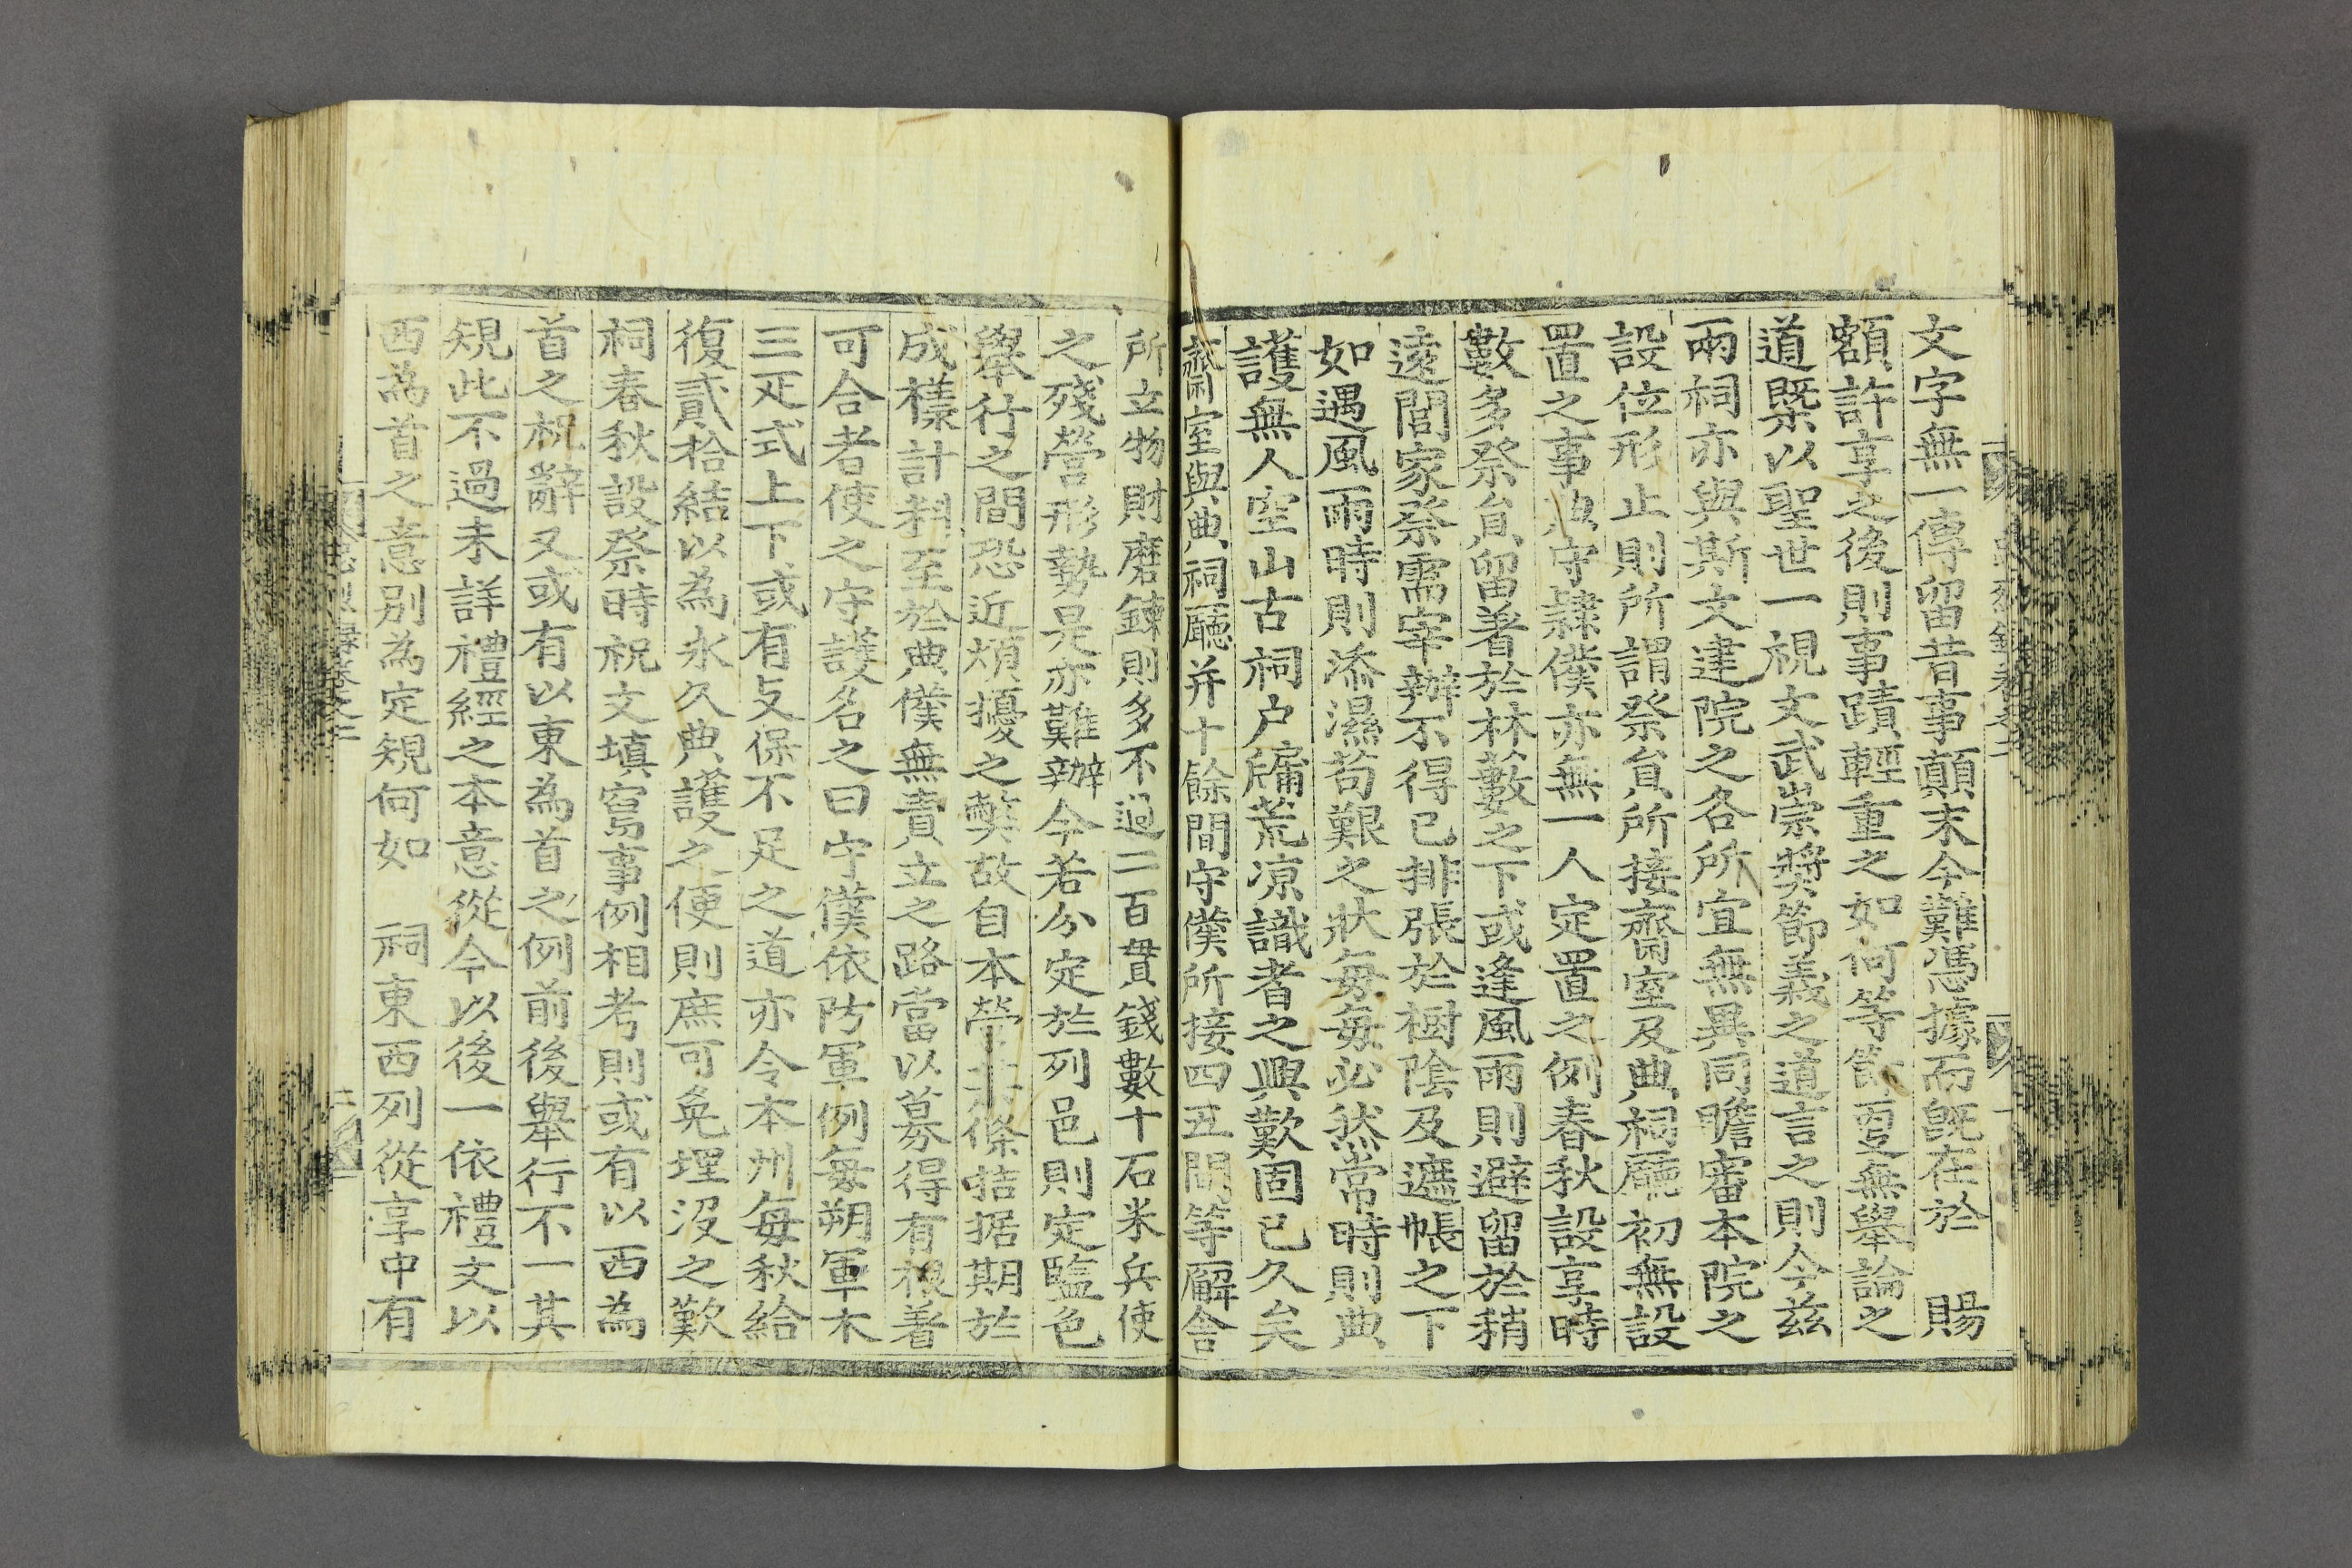 文字無一傳留昔事顛末今難憑據而旣在於 賜
額許享之後則事蹟輕重之如何等節更無擧論之
道槩以聖世一視文武崇奬節義之道言之則今玆
兩祠亦與斯文建院之各所宜無異同瞻審本院之
設位形止則所謂祭員所接齋室及典祀廳初無設
置之事守隷僕亦無一人定置之例春秋設享時
數多祭員留着於林藪之下或逢風雨則避留於稍
遠閭家祭需宰辦不得已排張於樹陰及遮帳之下
如遇風雨時則添濕苟艱之狀每每必然常時則典
護無人空山古祠户牖荒凉識者之興歎固已久矣
齋室與典祠廳并十餘間守僕所接四五間等廨舍
所立物財磨鍊則多不過二百貫錢數十石米兵使
之殘營形勢是亦難辦今若分定於列邑則定監色
擧行之間恐近煩擾之弊故自本營條拮据期於
成㨾計料至於典僕無責立之路當以募得有根着
可合者使之守護名之曰守僕依防軍例每朔軍木
三疋式上下或有攴保不足之道亦令本州每秋給
復貳拾結以為永久典護之便則庶可免埋沒之歎
祠春秋設祭時祝文填寫事例相考則或有以西為
首之祝辭又或有以東為首之例前後擧行不一其
規此不過未詳禮經之本意從今以後一依禮文以
西為首之意别為定規何如 祠東西列從享中有
忠烈錄卷之二